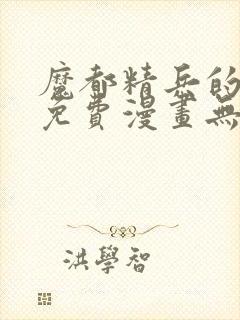 魔都精兵的
免費漫畫無
洪學智